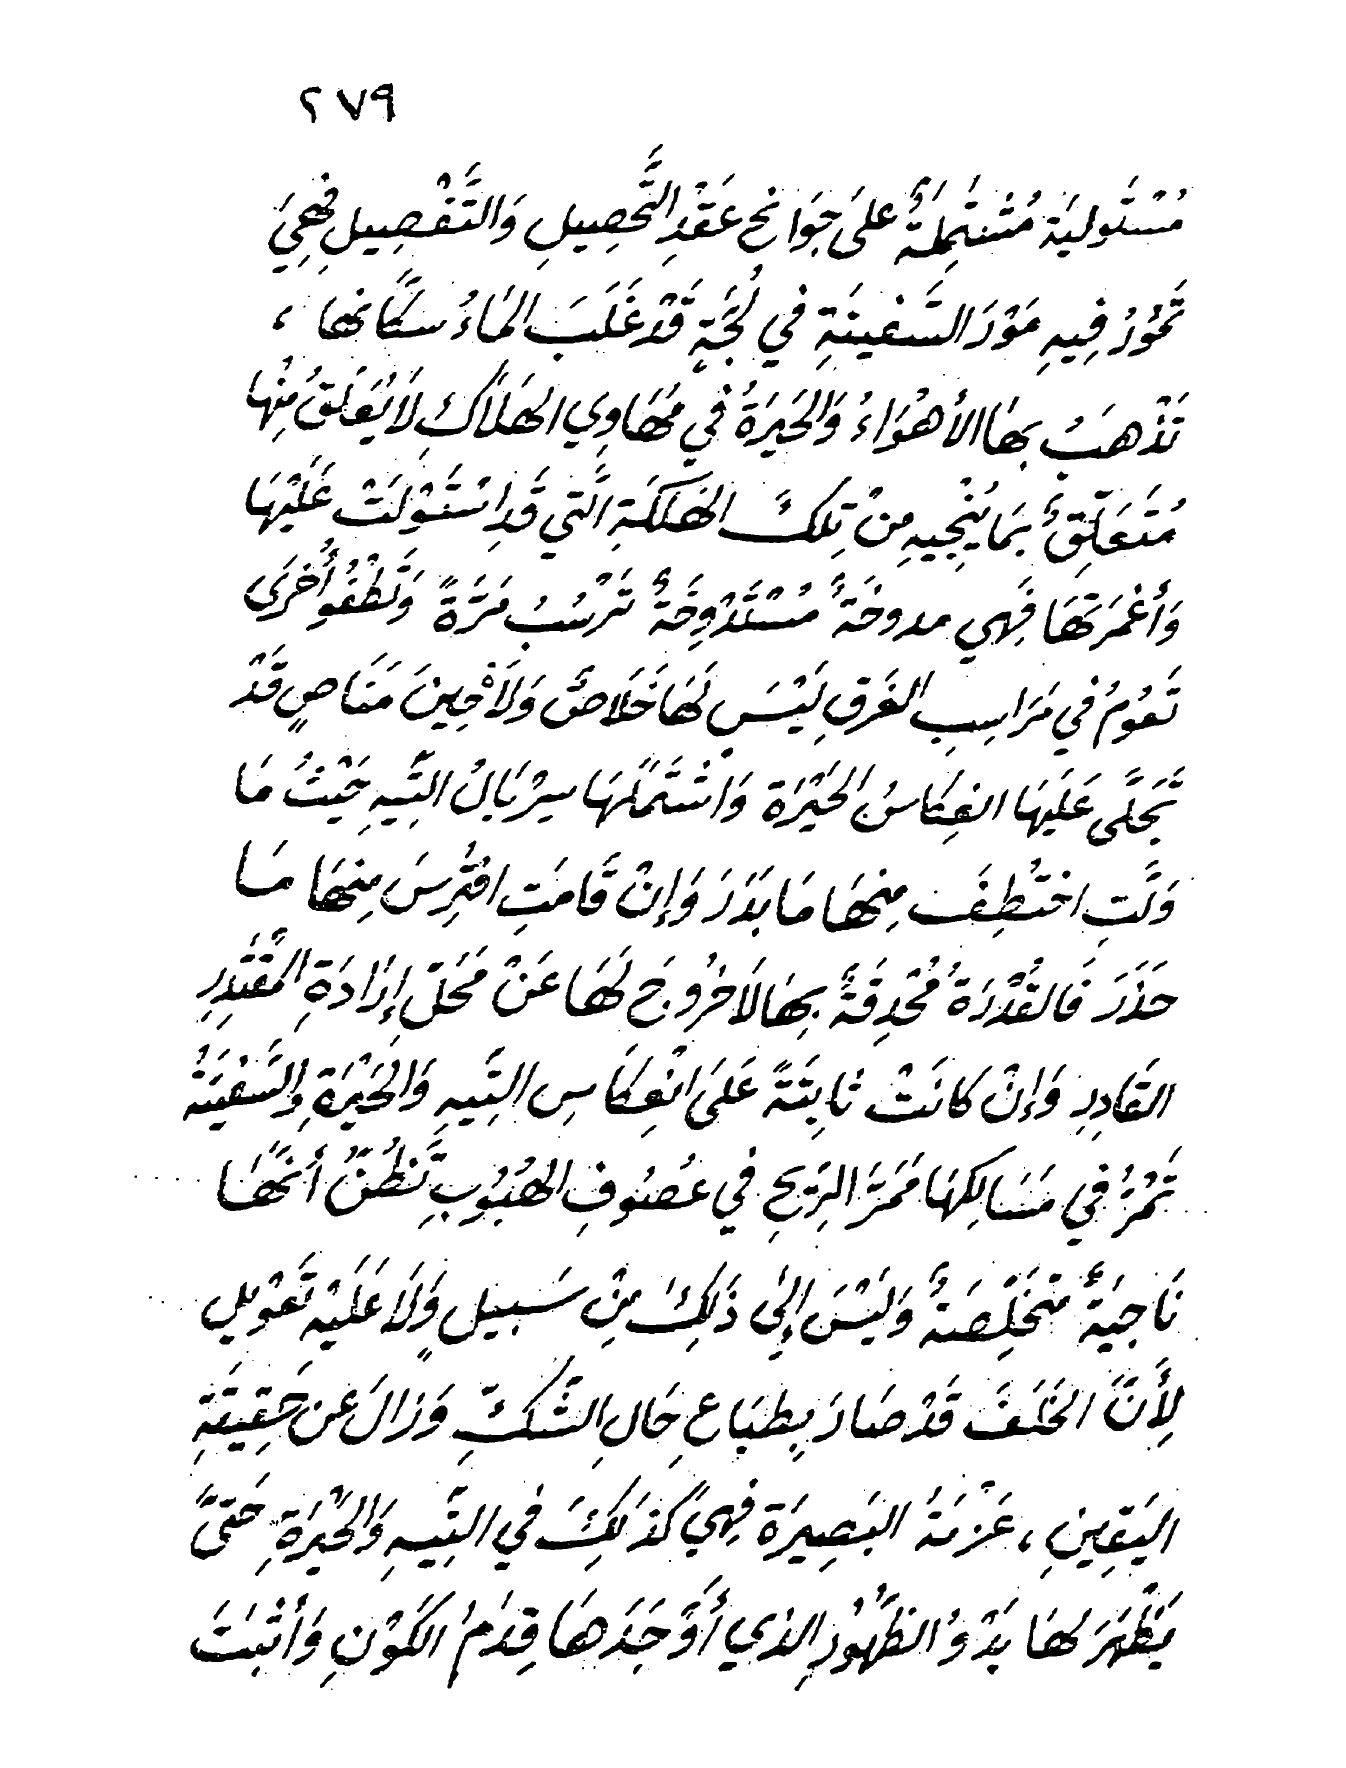 ٢٧٩
مُسْتَولِيَة مُشْتَمِلَةٌ عَلَى جَوَانِحِ عَقْدِ التَّحْصِيلِ وَالتَّفْصِيلِ فَهِيَ
تَمُورُ فِيهِ مَوْرَ السَّفِينَةِ فِي لُجَّةٍ قَدْ غَلَبَ المَاءُ سكَّانَها ،
تَذْهَبُ بِهَا الأَهْوَاءُ وَالحَيرَةُ فِي مَهَاوِي الهَلَاكِ لَا يُغَلَقُ مِنْها
مُتَعَلِّقٌ بِمَا يُنْجِيهِ مِنْ تِلكَ الهَلَكَةِ الَّتِي قَدِ اسْتَوْلَتْ عَلَيْهَا
وَأَغْمَرَتْهَا فَهِي مدوخَةٌ مُسْتَدْوِخَةٌ تَرْسُبُ مَرَّةً وَتَطْفُو أُخْرَى
تَعُومُ فِي مَرَاسِبِ الغَرَقِ لَيْسَ لَهَا خَلَاصٌ وَلَا حِينَ مَنَاصٍ قَدْ
تَجَلَّى عَلَيهَا انعِكَاسُ الحَيْرَة وَاشْتَمَلَهَا سِرْبَالُ التِّيهِ حَيْثُ مَا
وَلَّتِ اختُطِفَ مِنهَا مَا بَدَرَ وَإِنْ قَامَتِ افتُرِسَ مِنهَا مَا
حَذَرَ فَالقُدْرَةُ مُحْدِقَةٌ بِهَا لَا خرُوجَ لَهَا عَنْ مَحَلِّ إِرَادَةِ المُقْتَدِرِ
القَادِرِ وَإِنْ كَانَتْ ثَابِتَةً عَلَى انْعِكَاسِ التِّيهِ وَالحَيْرَةِ وَالسَّفِينَةُ
تَمُرُّ فِي مَسَالِكِهَا مَمَرَّ الرِّيحِ فِي عُصُوفِ الهُبُوبِ تَظُنُّ أَنَّهَا
نَاجِيَةٌ مُتَخَلِّصَةٌ وَلَيْسَ إِلَى ذَلِكَ مِنْ سَبِيل وَلَا عَلَيْهِ تَعْوِيل
لِأَنَّ الخَلَفَ قَدْ صَارَ بِطبَاعِ حَالِ الشَّكِّ وَزَالَ عَن حَقِيقَةِ
اليَقِينِ ، عَزْمَةُ البَصِيرَة فَهِيَ كَذَلِكَ فِي التِّيهِ وَالحَيْرَةِ حَتَّى
يَظْهَرَ لهَا بَدْوُ الظُّهُورِ الذِي أَوْجَدَهَا قِدَمُ الكَوْنِ وَأَثْبَتَ